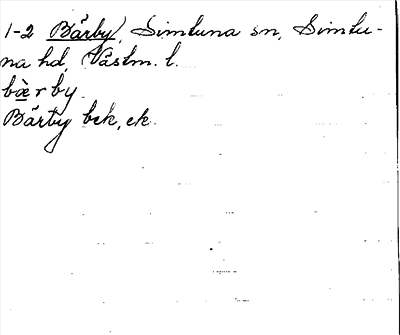 1-2 Bärby, Simtuna sn, Simtu-
na hd, Västm. l.
bæ̀r by
Bärby bek, ek